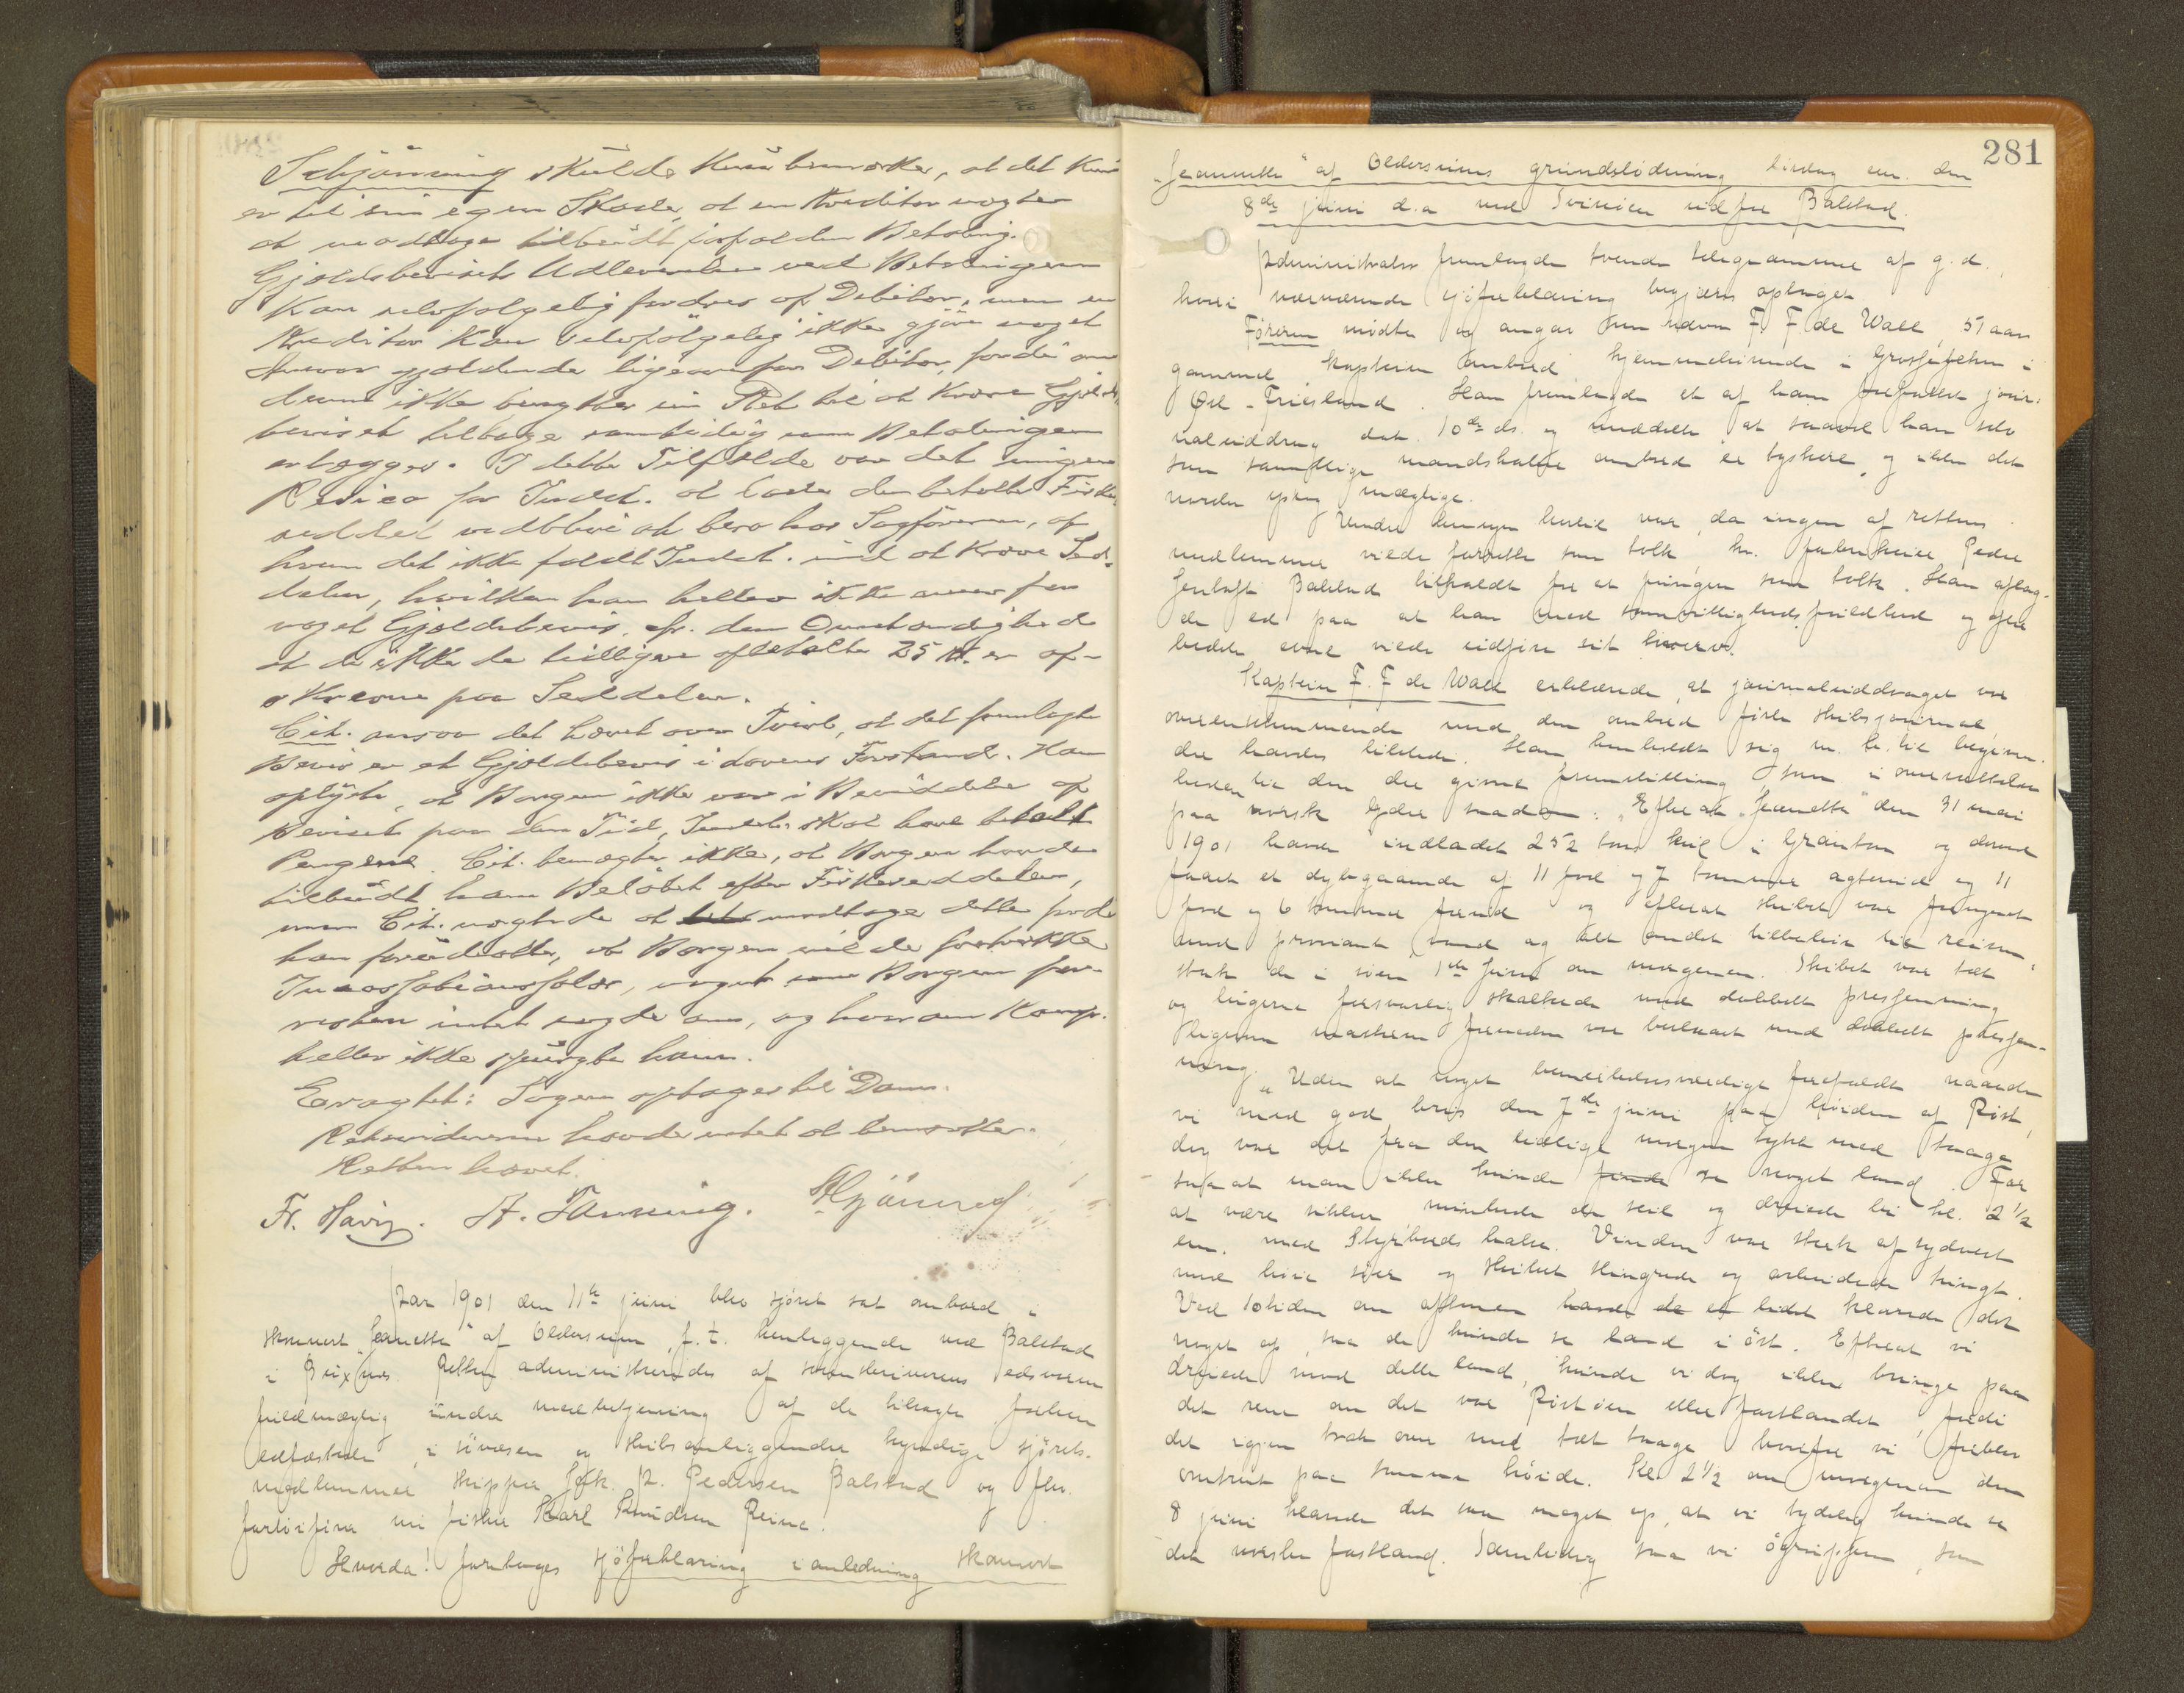 Schjönning skulde kun bemærke, at det kun
er til sin egen Skade, at en Kreditor nægter
at modtage tilbudt forfalden Betaling.
Gjældsbevisets Udlevering ved Betalingen
kan selvfølgelig fordres af Debitor, men en
Kreditor kan selvfølgelig ikke gjøre noget
Ansvar gjældende ligeoverfor Debitor, fordi om
denne ikke benytter sin Ret til at kræve Gjælds-
beviset tilbage samtidig som Betalingen
erlægges. I dette Tilfælde var det ingen
Risico for Indst. at lade den betalte Fiske-
seddel vedblive at bero hos Sagføreren, af
hvem det ikke faldt Indst. ind at kræve Sed-
delen, hvilken han heller ikke anser for
noget Gjældsbevis, cfr. den Omstændighed
at de ikke de tidligere afbetalte 25 Kr. er af-
skrevne paa Seddelen.
Cit. ansaa det hævet over Tvivl, at det fremlagte
Bevis er et Gjældsbevis i Lovens Forstand. Han
oplyste, at Borgen ikke var i Besiddelse af
Beviset paa den Tid, Indst. skal have betalt
Pengene. Cit. benægter ikke, at Borgen havde
tilbudt ham Beløbet efter Fiskeseddelen,
men Cit. nægtede at modtage dette fordi
han forudsatte, at Borgen vilde fratrække
Incassationssalær, noget som Borgen for-
resten intet sagde om, og hvorom Komp.
heller ikke spurgte ham.
Eragtet: Sagen optages til Dom.
Retsvidnerne havde intet at bemærke.
Retten hævet.
Fr. Havig. A. Tanning. Schjönning
Aar 1901 den 11te juni blev sjöret sat ombord i
skonnert "Jeanette" af Oldersum, f. t. henliggende ved Balstad
i Buxnes. Retten administreredes af sorenskriverens edsvorne
fuldmægtig under medbetjening af de tilsagte forhen
edfæstede, i sövæsen og skibsanliggender kyndige sjörets-
medlemmer skipper Joh. A. Pedersen Balstad og
fartöifører fisker Karl Knudsen Reine.
Hvorda! foretages sjöforklaring i anledning skonnert
281
"Jeanette" af Oldersums grundstödning lördag em. den
8de juni d.a ved Svinöen udfor Balstad.
Administrator fremlagde tvende telegrammer af g. d.,
hvori nærværende sjöforklaring begjæres optaget.
Føreren mødte og angav sin navn F. F. de Wall, 51 aar
gammel, kaptein ombord hjemmehörende i Grossefehn i
Ost-Friesland. Han fremlagde et af ham forfattet jour-
naluddrag dat. 10de ds. og meddelte at saavel han selv
som samtlige mandskaber ombord er tyskere, og ikke det
norske sprog mægtige.
Under henvisn hertil var, da ingen af rettens
medlemmer vilde forrette som tolk, hr. Peder
Jentoft Balstad tilkaldt for at fungere som tolk. Han aflag-
de ed paa at han med samvittighedsfuldhed og efter
bedste evne vilde udføre sit hverv.
Kaptein F. F de Wall erklærede, at journaluddraget var
overensstemmende med den ombord førte skibsjournal,
der havdes tilstede. Han henholdt sig
heder til den der givne fremstilling, som i oversættelse
paa norsk lyder saadan: "Efter at "Jeanette" den 31 mai
1901 havde indladet 252 tons kul i Granton og derved
faaet et dybgaaende af 11 fod og 7 tommer agterud og 11
fod og 6 tommer forud og efterat skibet var forsynet
med proviant vand og alt andet tilbehör til reisen,
stak de i söen 1ste juni om morgenen. Skibet var tæt
og lugerne forsvarlig skalkede med dobbelt presenning
ligesom masterne forneden var bevaret med dobbelt presen-
ning.
"Uden at noget bemerkelsesværdigt forefaldt naaede
vi med god bris den 7de juni paa höiden af Röst,
dog var det fra den tidlige morgen tykt med taage
saa at man ikke kunde se noget land. For
at være sikker mindskede de seil og dreiede bi kl. 2 1/2
em. med Styrbords halse. Vinden var sterk af sydvest
med höi sjö og skibet slingrede og arbeidede tungt.
Ved 10tiden om aftenen klarede det
noget op, saa de kunde se land i öst. Efterat vi
dreiede mod dette land, kunde vi dog ikke bringe paa
det rene om det var Röstöen eller fastlandet, fordi
det igjen trak over med tæt taage, hvorfor vi forblev
omtrent paa samme höide. Kl. 2 1/2 om morgenen den
8 juni klarede det saa meget op, at vi tydelig kunde se
det norske fastland. Samtidig saa vi ögruppen, som